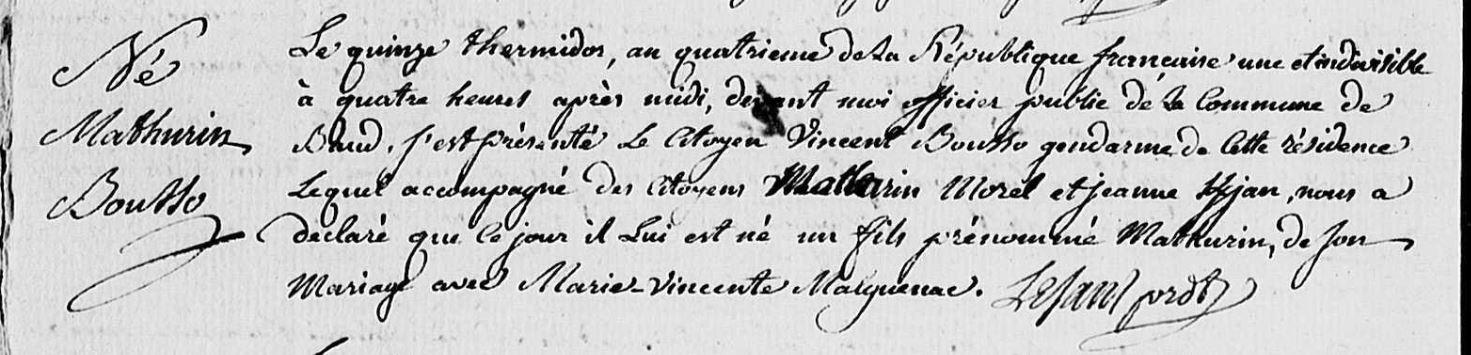 Né
Mathurin
Boutto
Le quinze thermidor, an quatrieme de la République francaise une et indivisible
à quatre heures après midi, devant moi officier public de la Commune de
Baud, s'est présenté Le Citoyen Vincent Boutto gendarme de Cette résidence
Lequel accompagné des Citoyens Mathurin Morel et jeanne, nous a
declaré que Ce jour il Lui est né un fils prénommé Mathurin, de son
Mariage avec Marie Vincente Malguenac.